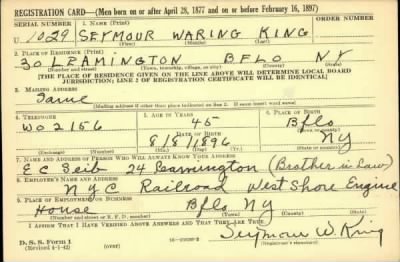 REGISTRATION CARD—(Men born on or after April 28, 1877 and on or before February 16, 1897)
SERIAL NUMBER 1. NAME (Print)
U 1029 SEYMOUR WARING KING
(First) (Middle) (Last)
2. PLACE OF RESIDENCE (Print)
30 LEAMINGTON BFLO NY
(Number and street) (Town, township, village, or city) (County) (State)
[THE PLACE OF RESIDENCE GIVEN ON THE LINE ABOVE WILL DETERMINE LOCAL BOARD
JURISDICTION; LINE 2 OF REGISTRATION CERTIFICATE WILL BE IDENTICAL]
3. MAILING ADDRESS
Same
[Mailing address if other than place indicated on line 2. If same insert word same]
4. TELEPHONE 5. AGE IN YEARS 6. PLACE OF BIRTH
WO 2156 45 Bflo
DATE OF BIRTH (Town or county)
8/8/1896 NY
(Exchange) (Number) (Mo.) (Day) (Yr.) (State or country)
7. NAME AND ADDRESS OF PERSON WHO WILL ALWAYS KNOW YOUR ADDRESS
E C Seib 24 Leamington (Brother in Law)
8. EMPLOYER'S NAME AND ADDRESS
N Y C Railroad West Shore Engine
9. PLACE OF EMPLOYMENT OR BUSINESS
House Bflo NY
(Number and street or R. F. D. number) (Town) (County) (State)
I AFFIRM THAT I HAVE VERIFIED ABOVE ANSWERS AND THAT THEY ARE TRUE.
Seymour W. King
D. S. S. Form 1
(Revised 4-1-42) (over) (Registrant's signature)